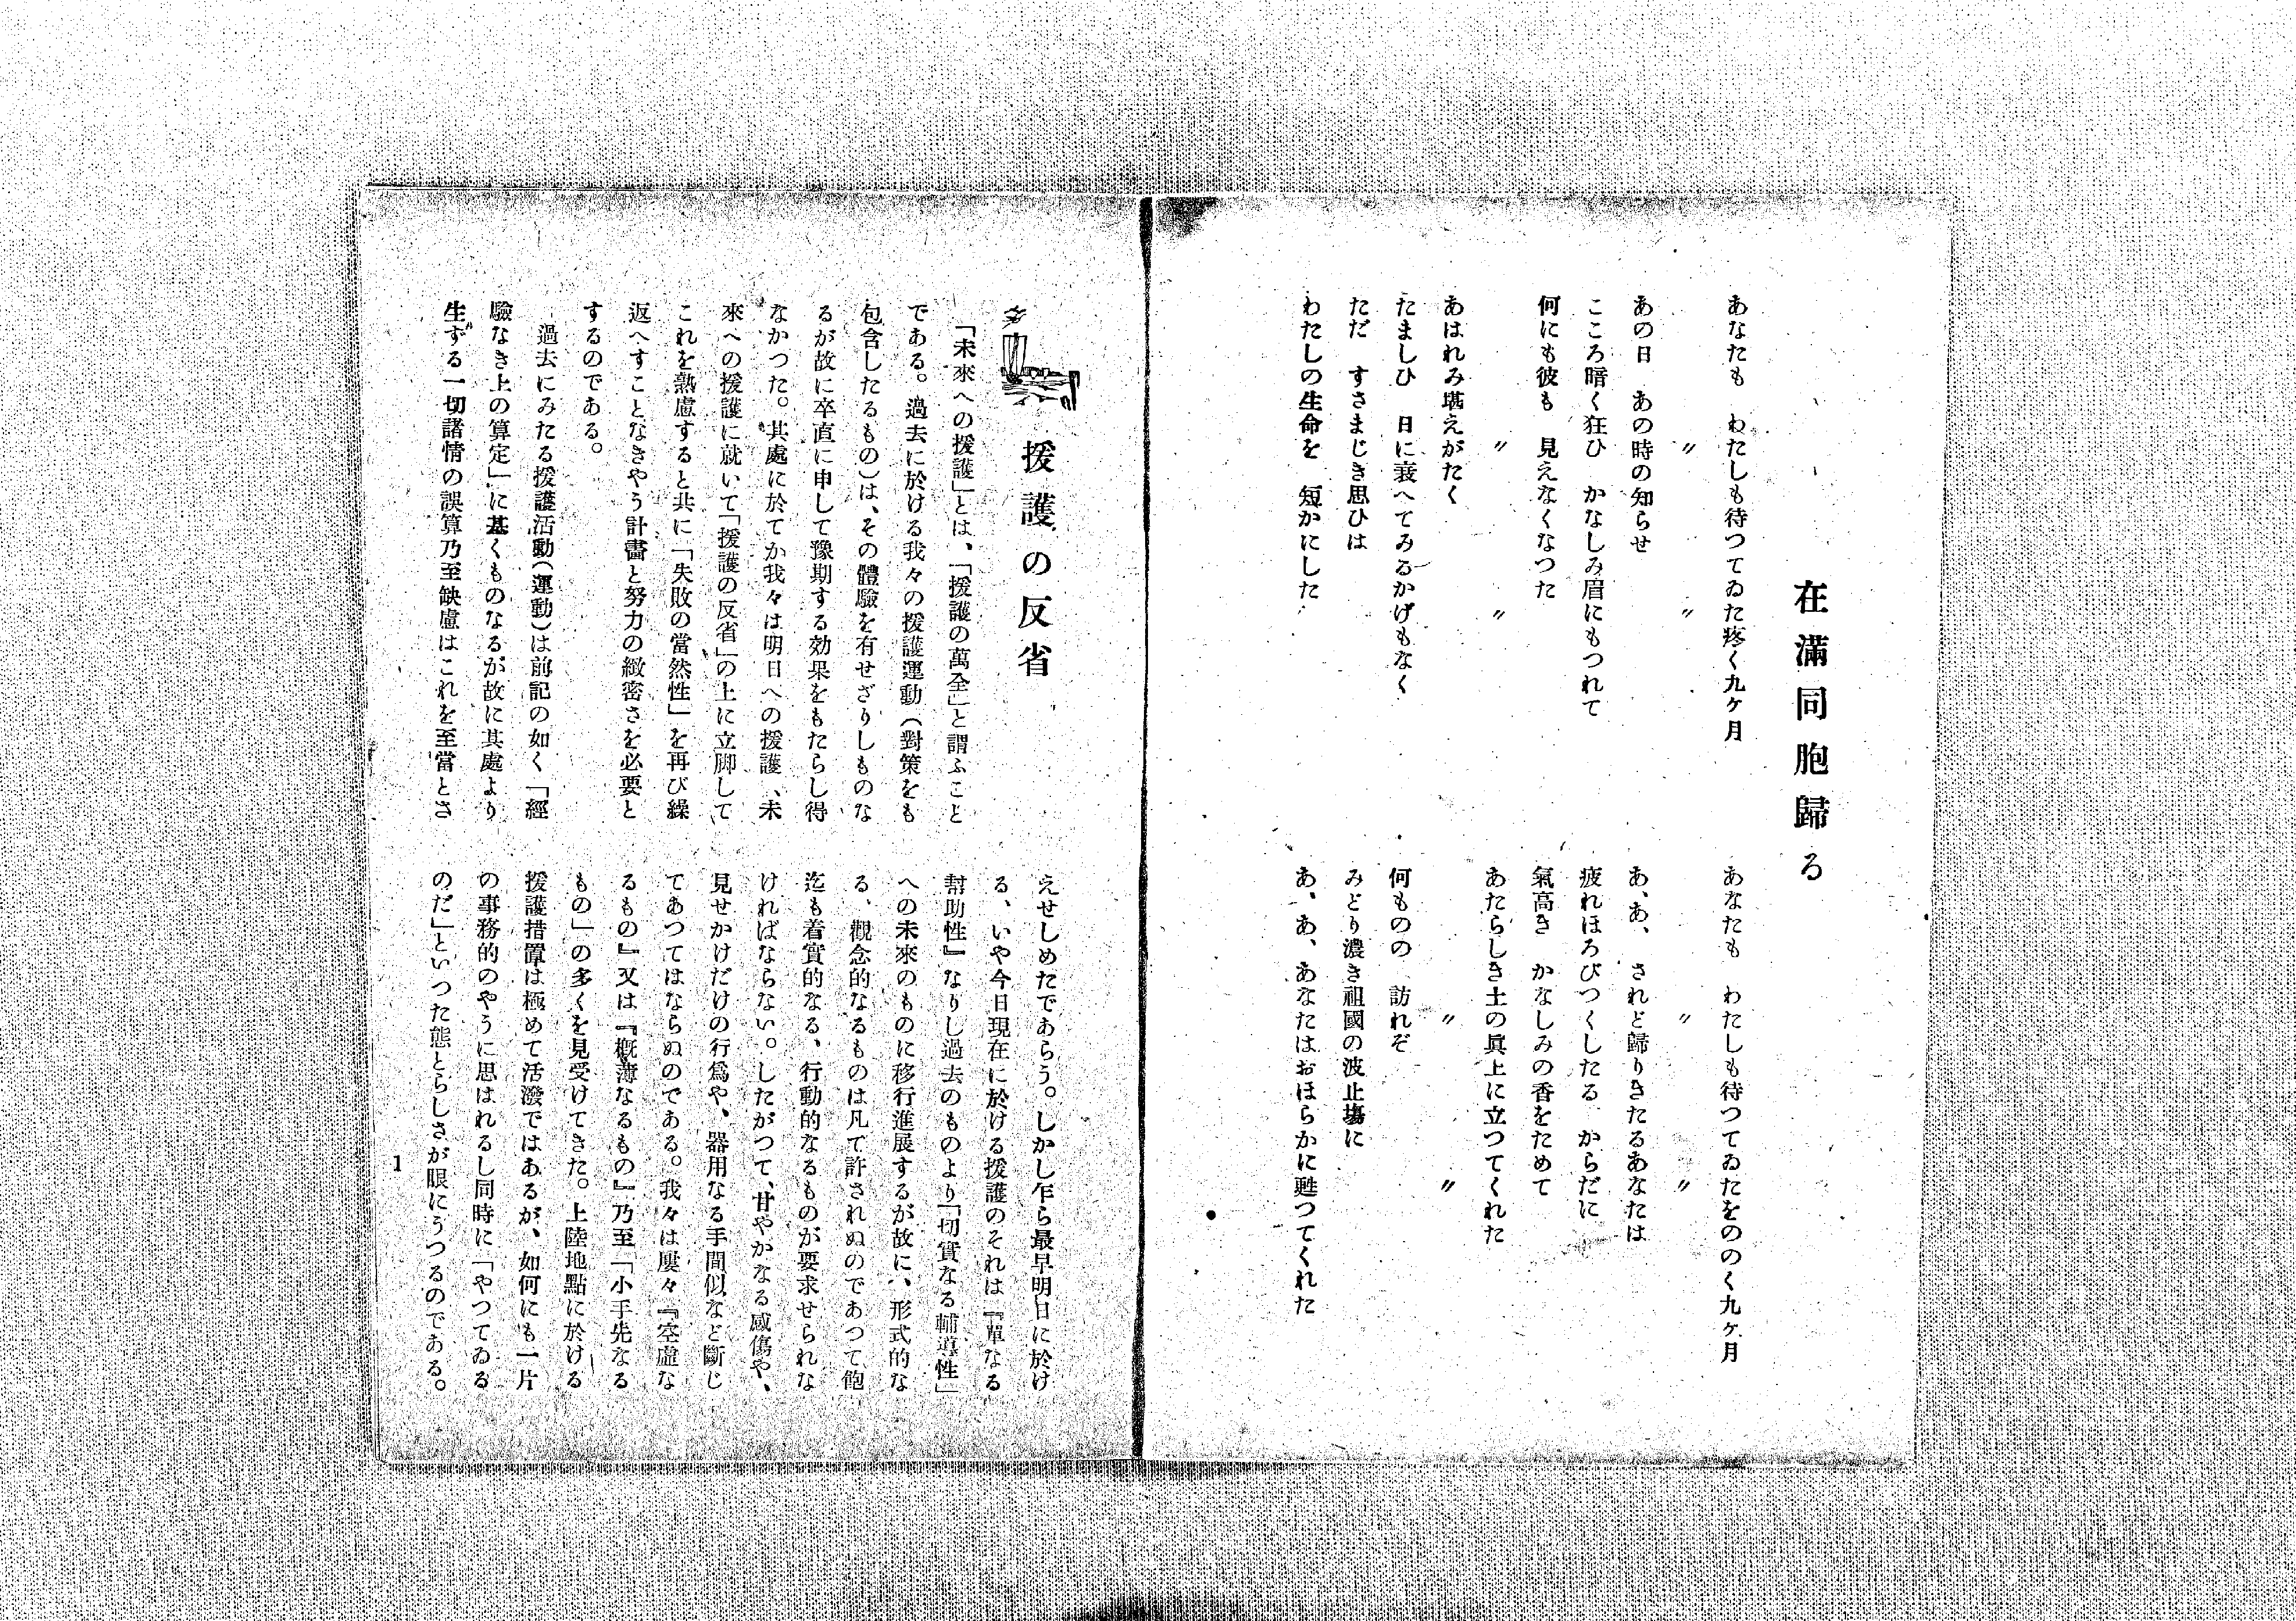 在滿同胞歸る
あなたも　わたしも待つてゐた疼く九ケ月
〃　〃
あの日　あの時の知らせ
こころ暗く狂ひ　かなしみ眉にもつれて
何にも彼も　見えなくなつた
〃　〃
あはれみ堪えがたく
たましひ　日に衰へてみるかげもなく
ただ　すさまじき思ひは
わたしの生命を　短かにした
あなたも　わたしも待つてゐたをののく九ケ月
〃　〃
あ、あ、　されど歸りきたるあなたは
疲れほろびつくしたる　からだに
氣高き　かなしみの香をためて
あたらしき土の眞上に立つてくれた
〃　〃
何ものの　訪れぞ
みどり濃き祖國の波止塲に
あ、あ、あなたはおほらかに甦つてくれた
援護の反省
「未來への援護」とは、「援護の萬全」と謂ふこと
である。過去に於ける我々の援護運動（對策をも
包含したるもの）は、その體驗を有せざりしものな
るが故に卒直に申して豫期する効果をもたらし得
なかつた。其處に於てか我々は明日への援護、未
來への援護に就いて「援護の反省」の上に立脚して
これを熟慮すると共に「失敗の當然性」を再び繰
返へすことなきやう計畫と努力の緻密さを必要と
するのである。
過去にみたる援護活動（運動）は前記の如く「經
驗なき上の算定」に基くものなるが故に其處より
生ずる一切諸情の誤算乃至缺慮はこれを至當とさ
えせしめたであらう。しかし乍ら最早明日に於け
る、いや今日現在に於ける援護のそれは『單なる
幇助性』なりし過去のものより「切實なる輔導性」
への未來のものに移行進展するが故に、形式的な
る、觀念的なるものは凡て許されぬのであつて飽
迄も着實的なる、行動的なるものが要求せられな
ければならない。したがつて、甘やかなる感傷や、
見せかけだけの行爲や、器用なる手間似など斷じ
てあつてはならぬのである。我々は屢々『空虛な
るもの』又は『概薄なるもの』乃至「小手先なる
もの」の多くを見受けてきた。上陸地點に於ける
援護措置は極めて活潑ではあるが、如何にも一片
の事務的のやうに思はれるし同時に「やつてゐる
のだ」といつた態とらしさが眼にうつるのである。
1